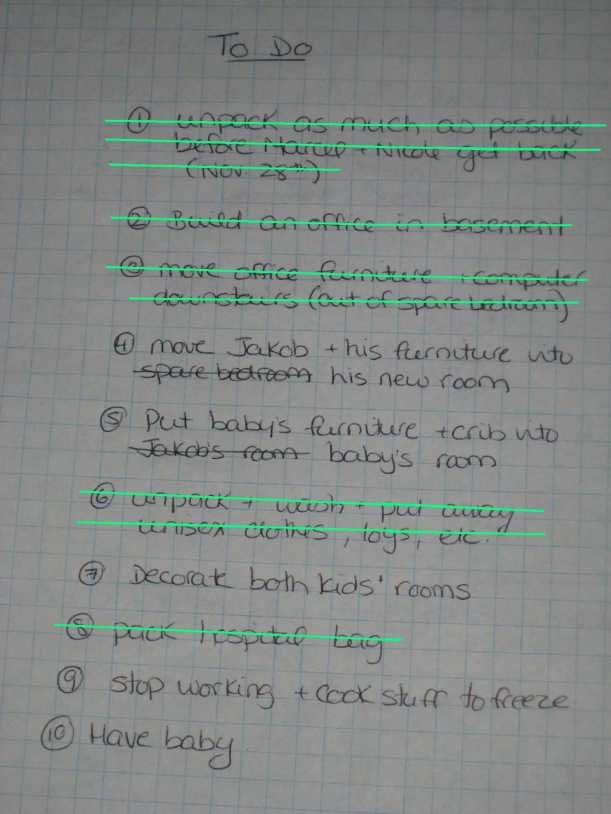 To Do
① unpack as much as possible
before Marcel + Nicole get back
(Nov 28th)
② Build an office in basement
③ move office furniture + computer
downstairs (out of spare bedroom)
④ move Jakob + his furniture into
spare bedroom his new room
⑤ Put baby's furniture + crib into
Jakob's room baby's room
⑥ unpack + wash + put away
unisex clothes, toys, etc.
⑦ Decorate both kids' rooms
⑧ pack hospital bag
⑨ stop working + cook stuff to freeze
⑩ Have baby